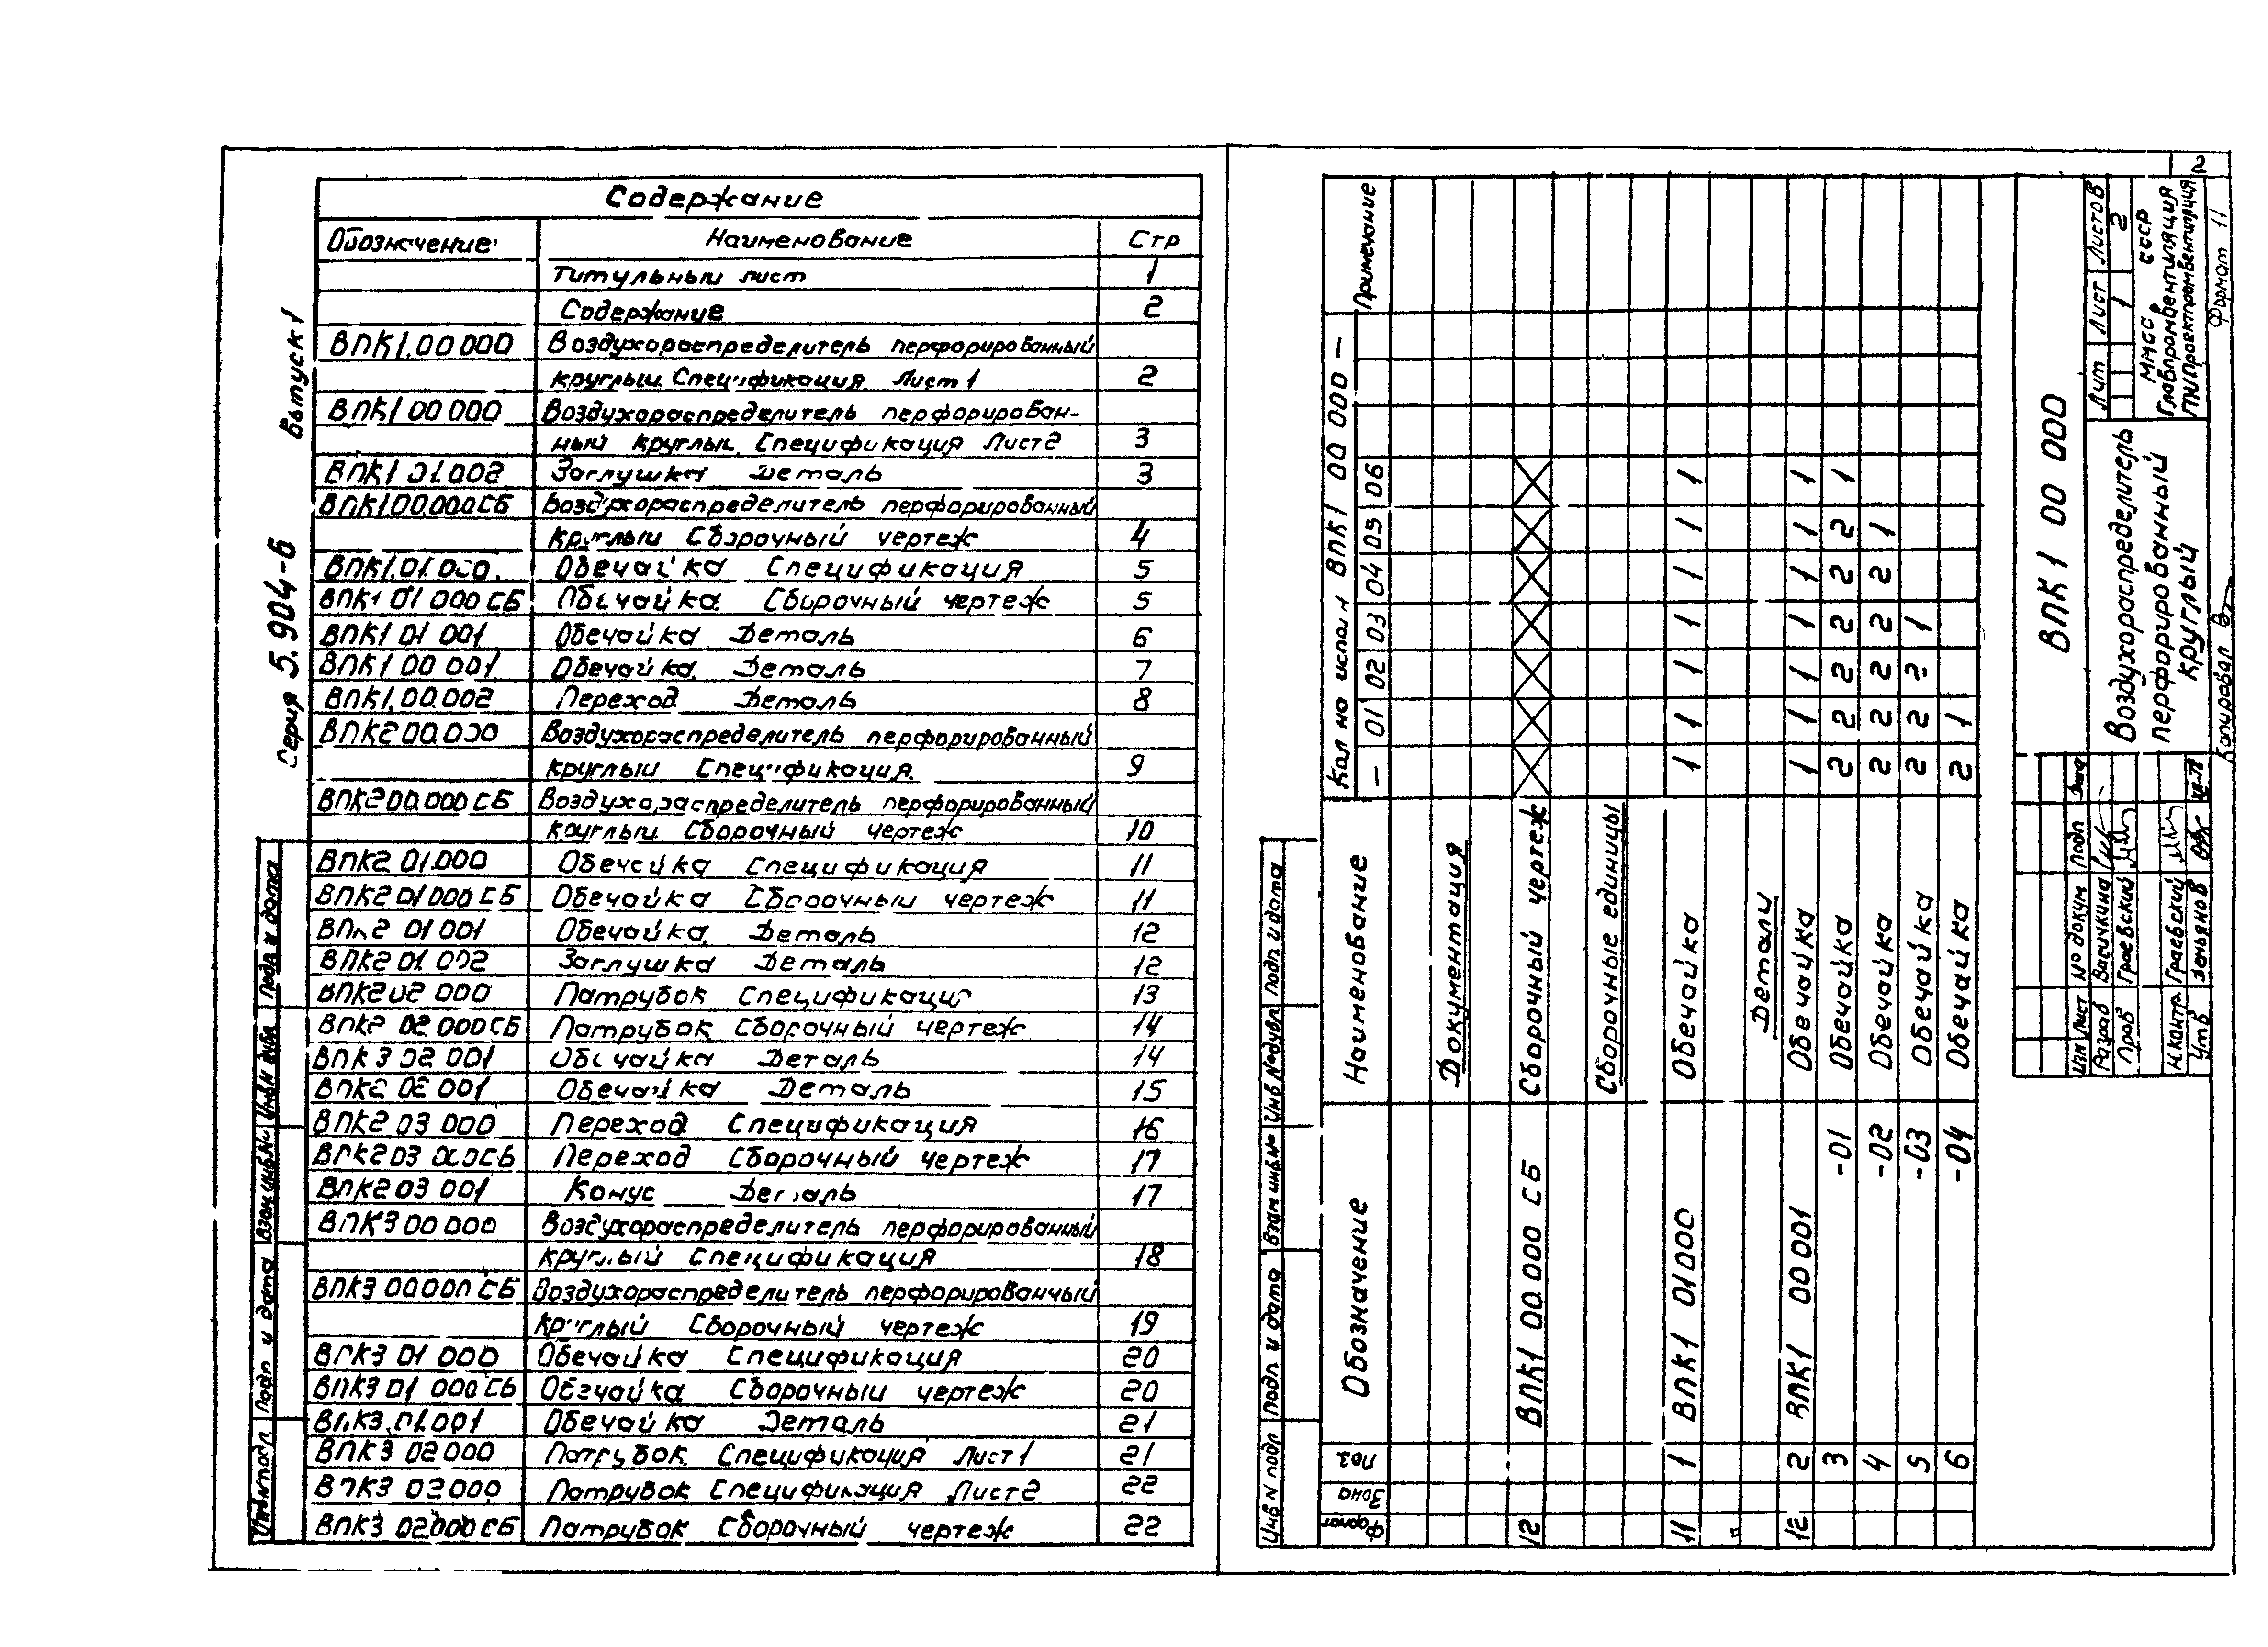 Серия 5.904-6 Выпуск 1
Содержание
Обозначение Наименование Стр
Титульный лист 1
Содержание 2
ВПК1.00 000 Воздухораспределитель перфорированный
круглый. Спецификация. Лист 1 2
ВПК1 00 000 Воздухораспределитель перфорирован-
ный круглый. Спецификация Лист 2 3
ВПК1 01.002 Заглушка Деталь 3
ВПК1.00.000 СБ Воздухораспределитель перфорированный
круглый Сборочный чертеж 4
ВПК1.01.000. Обечайка Спецификация 5
ВПК1 01 000 СБ Обечайка. Сборочный чертеж 5
ВПК1 01 001 Обечайка Деталь 6
ВПК1 00 001 Обечайка. Деталь 7
ВПК1.00.002 Переход Деталь 8
ВПК2 00.000 Воздухораспределитель перфорированный
круглый Спецификация. 9
ВПК2 00.000 СБ Воздухораспределитель перфорированный
круглый Сборочный чертеж 10
ВПК2 01.000 Обечайка Спецификация 11
ВПК2 01 000 СБ Обечайка Сборочный чертеж 11
ВПК2 01 001 Обечайка. Деталь 12
ВПК2 01. 002 Заглушка Деталь 12
ВПК2 02 000 Патрубок Спецификация 13
ВПК2 02 000 СБ Патрубок Сборочный чертеж 14
ВПК3 02 001 Обечайка Деталь 14
ВПК2 02 001 Обечайка Деталь 15
ВПК2 03 000 Переход Спецификация 16
ВПК2 03 000 СБ Переход Сборочный чертеж 17
ВПК2 03 001 Конус Деталь 17
ВПК3 00 000 Воздухораспределитель перфорированный
круглый Спецификация 18
ВПК3 00 000 СБ Воздухораспределитель перфорированный
круглый Сборочный чертеж 19
ВПК3 01 000 Обечайка Спецификация 20
ВПК3 01 000 СБ Обечайка Сборочный чертеж 20
ВПК3.01.001 Обечайка Деталь 21
ВПК3 02 000 Патрубок. Спецификация Лист 1 21
ВПК3 02 000 Патрубок Спецификация Лист 2 22
ВПК3 02.000 СБ Патрубок Сборочный чертеж 22
Инв N подл Подп и дата Взам инв N Инв N дубл Подп и дата
2
Формат Зона Поз. Обозначение Наименование Кол на исполн ВПК1 00 000 — Примечание
— 01 02 03 04 05 06
Документация
12 ВПК1 00.000 СБ Сборочный чертеж
Сборочные единицы
11 1 ВПК1 01 000 Обечайка 1 1 1 1 1 1 1
Детали
12 2 ВПК1 00 001 Обечайка 1 1 1 1 1 1 1
3 -01 Обечайка 2 2 2 2 2 2 1
4 -02 Обечайка 2 2 2 2 2 1
5 -03 Обечайка 2 2 2 1
6 -04 Обечайка 2 1
Инв N подл Подп и дата Взам инв № Инв № дубл Подп и дата
ВПК1 00 000
Изм Лист № докум Подп Дата
Разраб Васичкина
Пров Граевский
Н.контр Граевский
Утв
Воздухораспределитель
перфорированный
круглый
Лит Лист Листов
1 2
ММСС СССР
Главпромвентиляция
ГПИ Проектпромвентиляция
Копировал Формат 11